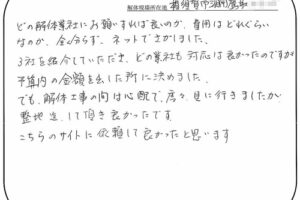 解体現場所在地
どの解体業社にお願いすれば良いのか、費用はどれぐらい
なのか、全く分らず、ネットでさがしました。
3社を紹介していただき、どの業社も対応は良かったのですが
予算内の金額を出した所に決めました。
でも、解体工事の間は心配で、度々見に行きましたが
整地をして頂き良かったです
こちらのサイトに依頼して良かったと思います